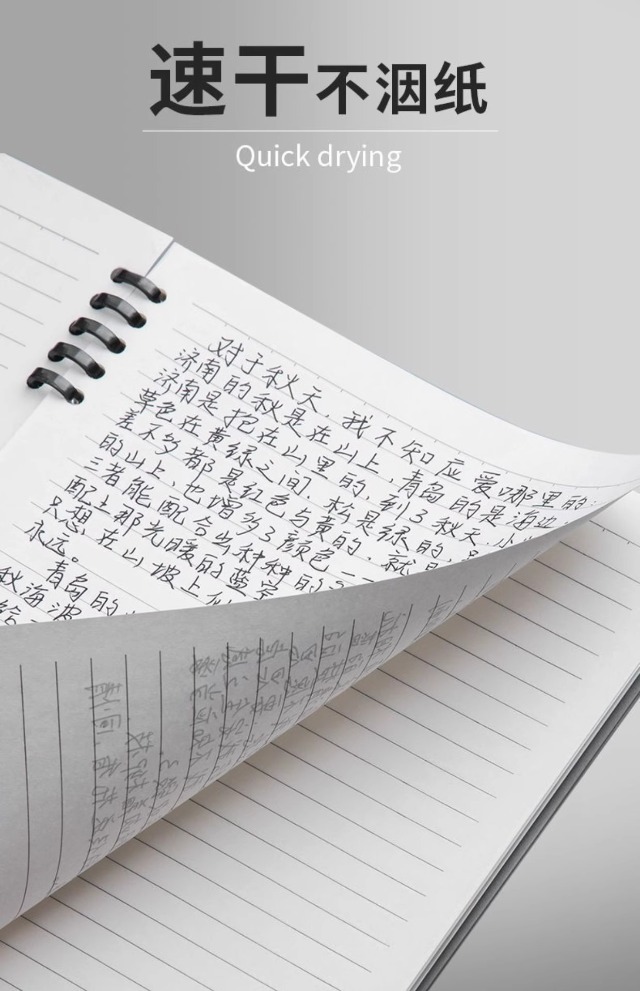 速干不洇纸
Quick drying
对于秋天,我不知应爱哪里的:
济南的秋是在山上,青岛的是海边
济南是把在山里的,到了秋天,小
草色在黄绿之间,松是绿的
差不多都是红色与黄的,就
的山上,也增多了颜色
三者能配合出种种的
配上那光暖的蓝空
只想在山坡上
永远。
青岛的
秋海波